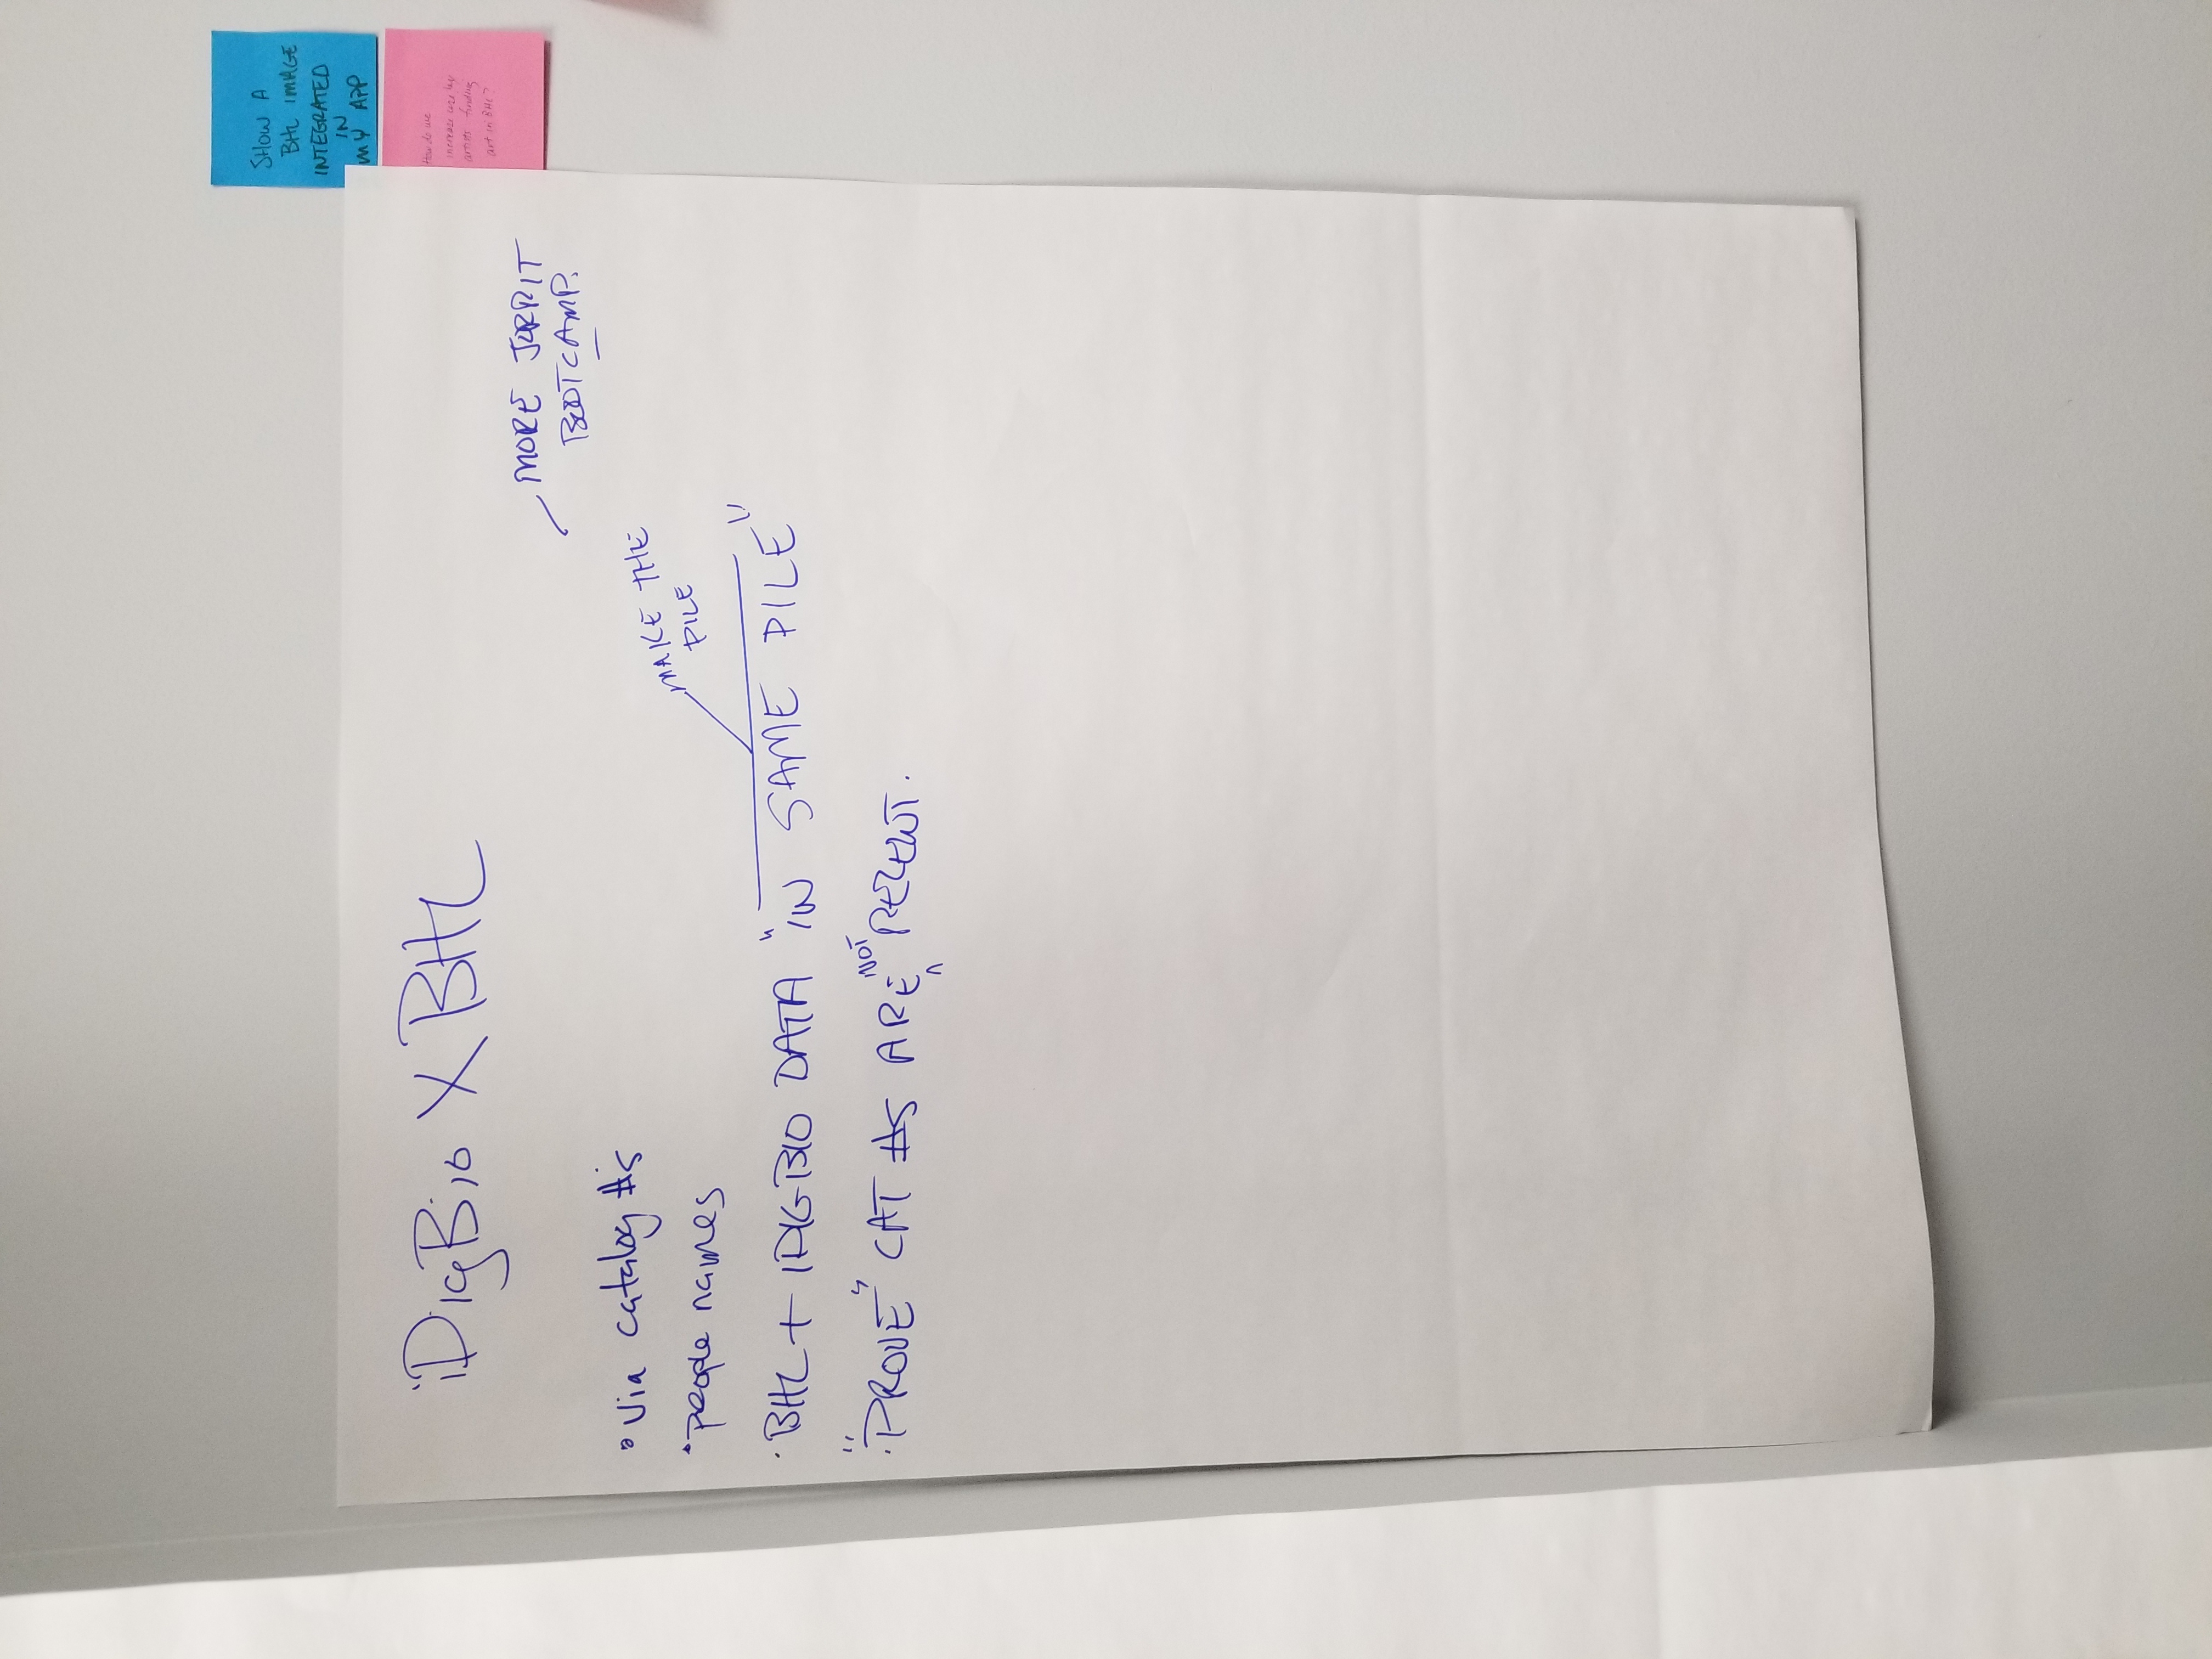 iDigBio X BHL
MORE JORRIT
BOOTCAMP.
• Via catalog #s
• people names
MAKE THE
PILE
• BHL + IDIGBIO DATA "IN SAME PILE"
• "PROVE" CAT #S ARE NOT
SHOW A
BHL IMAGE
INTEGRATED
IN
MY APP
How do we
increase use by
artists finding
art in BHL?